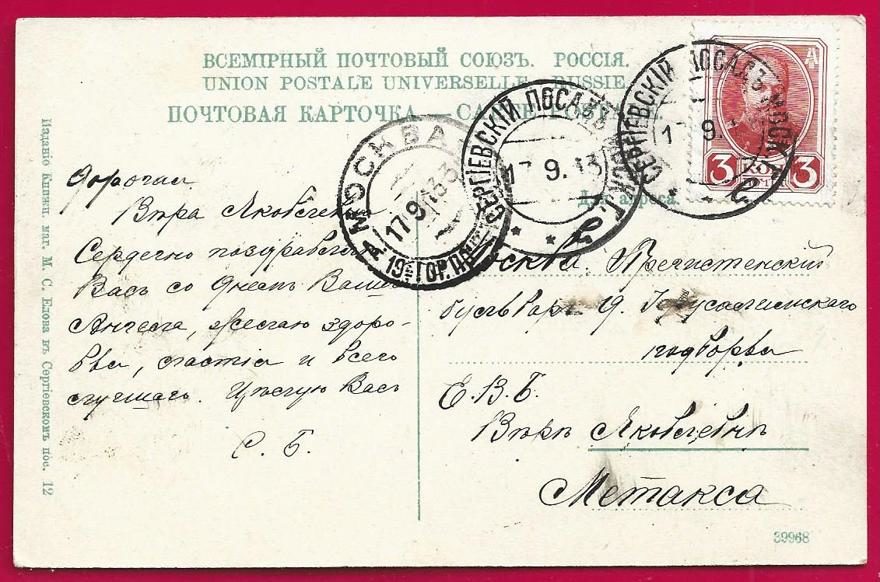 ВСЕМІРНЫЙ ПОЧТОВЫЙ СОЮЗЪ. РОССІЯ.
UNION POSTALE UNIVERSELLE. RUSSIE.
ПОЧТОВАЯ КАРТОЧКА.
А
3 КОП 3
СЕРГІЕВСКІЙ ПОСАДЪ МОСК. Г.
17.9.13
СЕРГІЕВСКІЙ ПОСАДЪ МОСК. Г.
17.9.
МОСКВА
17.9.13
19 ГОР. ПО
Дорогая
Вѣра Яковлевна
Сердечно поздравляю
Васъ со Днемъ Вашего
Ангела, желаю здоро-
вья, счастія и всего
лучшаго. Цѣлую Васъ
С. Б.
Для адреса.
Москва. Пречистенскій
бульваръ д. Іерусалимскаго
подворья
Е. В. Б.
Вѣрѣ Яковлевнѣ
Метакса
Изданіе Книжн. маг. М. С. Елова въ Сергіевскомъ пос. 12
39968